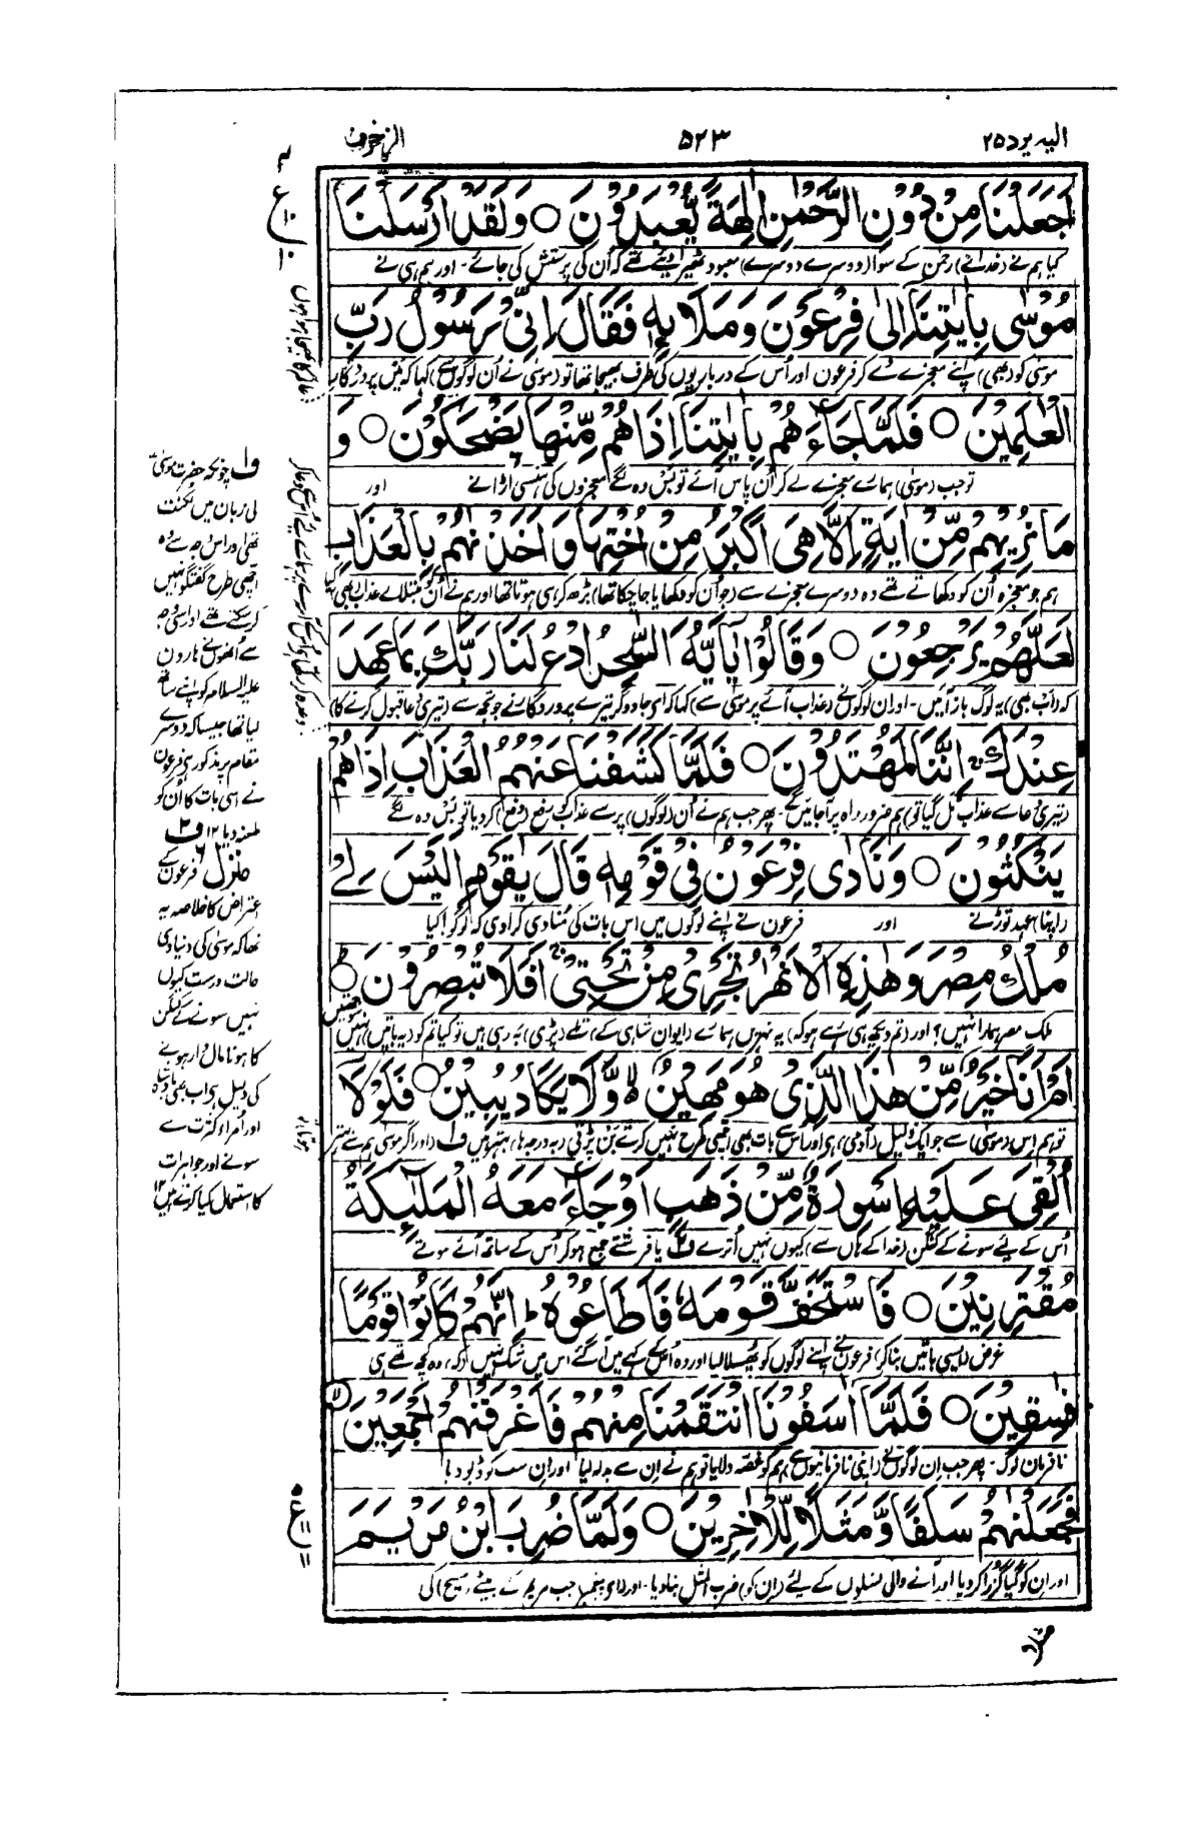 الیه یرد ۲۵
۵۲۳
الزخرف
اَجَعَلْنَا مِنْ دُوْنِ الرَّحْمٰنِ اٰلِهَةً يُّعْبَدُوْنَ ○ وَلَقَدْ اَرْسَلْنَا
کیا ہم نے (خدائے) رحمٰن کے سوا (دوسرے دوسرے) معبود ٹھیرا دیئے تھے کہ اُن کی پرستش کی جائے ۔ اور ہم ہی نے
مُوْسٰى بِاٰيٰتِنَاۤ اِلٰى فِرْعَوْنَ وَمَلَا۟ئِهٖ فَقَالَ اِنِّىْ رَسُوْلُ رَبِّ
موسیٰ کو (بھی) اپنے معجزے دے کر فرعون اور اُس کے درباریوں کی طرف بھیجا تھا تو (موسیٰ نے اُن لوگوں سے) کہا کہ میں پروردگار
الْعٰلَمِيْنَ ○ فَلَمَّا جَآءَهُمْ بِاٰيٰتِنَاۤ اِذَا هُمْ مِّنْهَا يَضْحَكُوْنَ ○ وَ
توجب (موسیٰ) ہمارے معجزے لے کر اُن پاس آئے تو بس وہ لگے معجزوں کی ہنسی اڑانے اور
مَا نُرِيْهِمْ مِّنْ اٰيَةٍ اِلَّا هِىَ اَكْبَرُ مِنْ اُخْتِهَا وَاَخَذْنٰهُمْ بِالْعَذَابِ
ہم جو معجزہ اُن کو دکھاتے تھے وہ دوسرے معجزے سے (جو اُن کو دکھایا جا چکا تھا) بڑھ کر ہی ہوتا تھا اور ہم نے اُن کو مبتلائے عذاب بھی کیا
لَعَلَّهُمْ يَرْجِعُوْنَ ○ وَقَالُوْا يٰۤاَيُّهَ السّٰحِرُ ادْعُ لَنَا رَبَّكَ بِمَا عَهِدَ
کہ (اب بھی) یہ لوگ باز آئیں ۔ اور ان لوگوں نے (عذاب آئے پر موسیٰ سے) کہا کہ اے جادوگر تیرے پروردگار نے جو تجھ سے (تیری دعا قبول کرنے کا)
عِنْدَكَ ۚ اِنَّنَا لَمُهْتَدُوْنَ ○ فَلَمَّا كَشَفْنَا عَنْهُمُ الْعَذَابَ اِذَا هُمْ
(تیری دعا سے عذاب ٹل گیا تو) ہم ضرور راہ پر آجائیں گے ۔ پھر جب ہم نے اُن (لوگوں) پر سے عذاب کو رفع (دفع) کر دیا تو بس وہ لگے
يَنْكُثُوْنَ ○ وَنَادٰى فِرْعَوْنُ فِىْ قَوْمِهٖ قَالَ يٰقَوْمِ اَلَيْسَ لِىْ
(اپنا) عہد توڑنے اور فرعون نے اپنے لوگوں میں اس بات کی مُنادی کرادی کہ لوگو! کیا
مُلْكُ مِصْرَ وَهٰذِهِ الْاَنْهٰرُ تَجْرِىْ مِنْ تَحْتِىْ ۚ اَفَلَا تُبْصِرُوْنَ ○ ؕ
ملک مصر ہمارا نہیں؟ اور (تم دیکھ ہی رہے ہو کہ) یہ نہریں ہمارے (ایوان شاہی کے) تلے (پڑی) بہ رہی ہیں تو کیا تم کو (یہ باتیں) نہیں سوجھتیں
اَمْ اَنَا خَيْرٌ مِّنْ هٰذَا الَّذِىْ هُوَ مَهِيْنٌ ۙ وَّلَا يَكَادُ يُبِيْنُ ○ فَلَوْلَاۤ
تو ہم اِس (موسیٰ) سے جو ایک ذلیل (آدمی) ہی اور اُس سے بات بھی اچھی طرح نہیں کرتے بن پڑتی (بدرجہا) بہتر ہیں ف۱ (اور اگر موسیٰ ہم سے بہتر
اُلْقِىَ عَلَيْهِ اَسْوِرَةٌ مِّنْ ذَهَبٍ اَوْ جَآءَ مَعَهُ الْمَلٰٓئِكَةُ
اُس کے لیے سونے کے کنگن (خدا کے ہاں سے) کیوں نہیں اُترے ف۲ یا فرشتے جمع ہو کر اُس کے ساتھ آئے ہوتے
مُقْتَرِنِيْنَ ○ فَاسْتَخَفَّ قَوْمَهٗ فَاَطَاعُوْهُ ؕ اِنَّهُمْ كَانُوْا قَوْمًا
غرض (ایسی باتیں بنا کر) فرعون نے اپنے لوگوں کو پھسلا لیا اور وہ اُس کے کہے میں آگئے اس میں شک نہیں (کہ) وہ کچھ تھے ہی
فٰسِقِيْنَ ○ فَلَمَّاۤ اٰسَفُوْنَا انْتَقَمْنَا مِنْهُمْ فَاَغْرَقْنٰهُمْ اَجْمَعِيْنَ
نافرمان لوگ ۔ پھر جب اِن لوگوں نے (اپنی نافرمانیوں سے) ہم کو غصہ دلایا تو ہم نے اِن سے بدلہ لیا اور اِن سب کو ڈبو دیا
فَجَعَلْنٰهُمْ سَلَفًا وَّمَثَلًا لِّلْاٰخِرِيْنَ ○ وَلَمَّا ضُرِبَ ابْنُ مَرْيَمَ
اور اِن کو گیا گزرا کر دیا اور آنے والی نسلوں کے لیئے (ان کو) ضرب المثل بنا دیا ۔ اور (اے پیغمبر) جب مریم کے بیٹے (مسیح) کی
عالم کا بھیجا ہوا ہوں
ف۱ چونکہ حضرت موسیٰ
کی زبان میں لکنت
تھی اور اس وجہ سے وہ
اچھی طرح گفتگو نہیں
کر سکتے تھے اور اسی وجہ
سے اُنھوں نے ہارون
علیہ السلام کو اپنے ساتھ
لیا تھا جیسا کہ دوسرے
مقام پر مذکور ہے فرعون
نے اسی بات کا اُن کو
طعنہ دیا ۱۲ ف۲
منزل ۶ فرعون کے
اعتراض کا خلاصہ یہ
تھا کہ موسیٰ کی دنیاوی
حالت درست کیوں
نہیں سونے کے کنگن
کا ہونا مال دار ہونے
کی دلیل ہے اب بھی بادشاہ
اور اُمراء کثرت سے
سونے اور جواہرات
کا استعمال کیا کرتے ہیں ۱۲